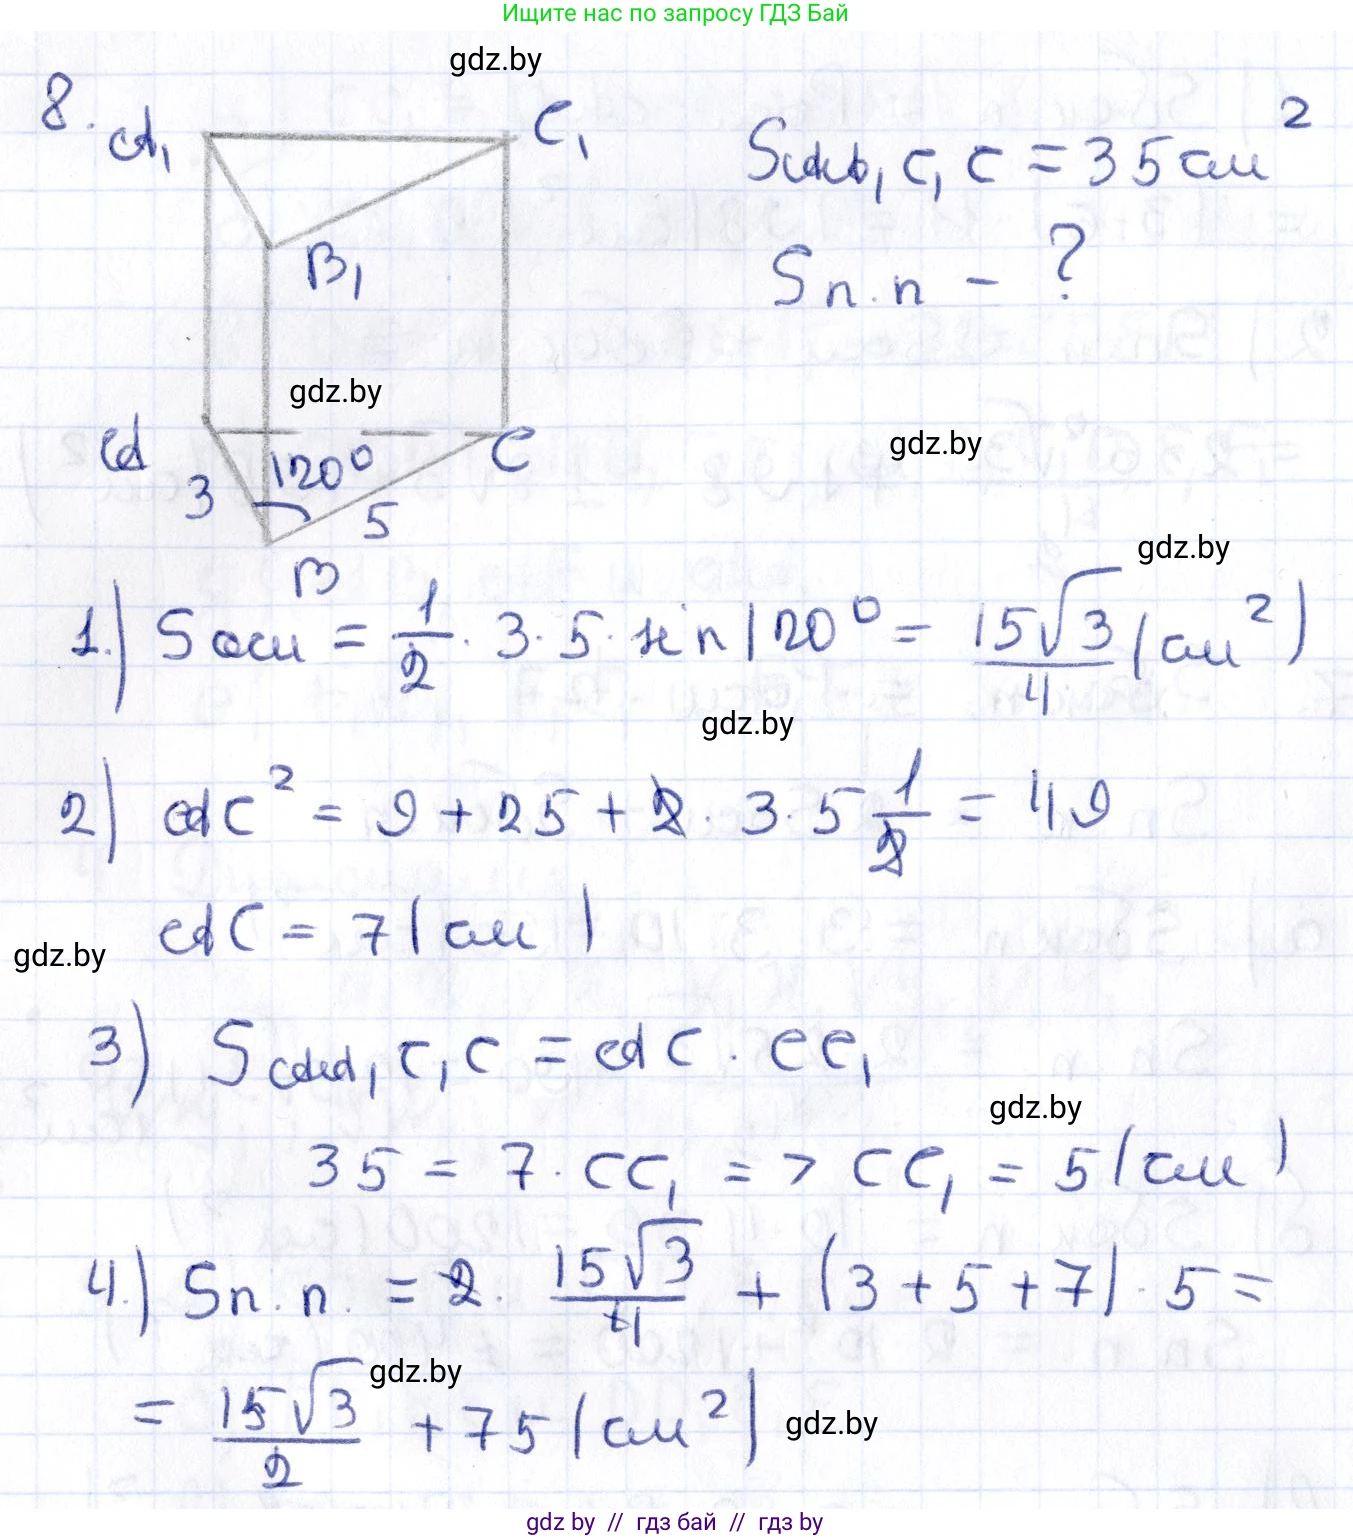 Ищите нас по запросу ГДЗ Бай
gdz.by
8.
A₁
C₁
S AA₁C₁C = 35 см²
B₁
Sп.п - ?
gdz.by
gdz.by
A
120°
C
3
5
B
gdz.by
1.) Sосн = 1/2 · 3 · 5 · sin 120° = 15√3/4 (см²)
gdz.by
2) AC² = 9 + 25 + 2 · 3 · 5 1/2 = 49
AC = 7 (см)
gdz.by
3) S AA₁C₁C = AC · CC₁
gdz.by
35 = 7 · CC₁ => CC₁ = 5 (см)
4.) Sп.п. = 2 · 15√3/4 + (3 + 5 + 7) · 5 =
gdz.by
= 15√3/2 + 75 (см²)
gdz.by
gdz by // гдз бай // гдз by